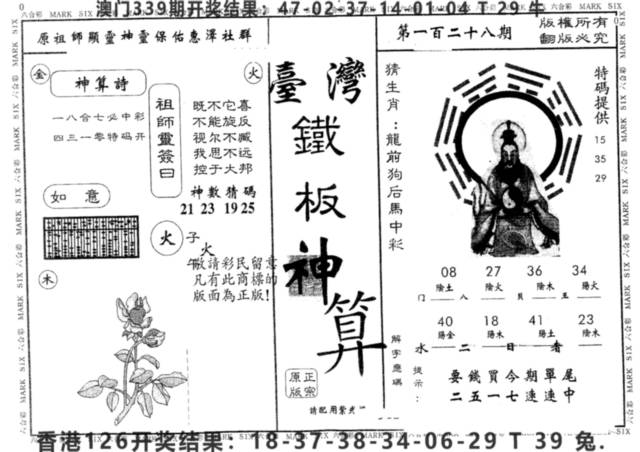 澳门339期开奖结果：47-02-37-14-01-04 T 29 牛
六合彩 MARK SIX 六合彩 MARK SIX 六合彩 MARK SIX 六合彩
原祖師顯靈神靈保佑惠澤社群
第一百二十八期
版權所有
翻版必究
金
神算詩
一八合七必中彩
四三一零特码开
火
祖師靈簽曰
既不它喜
不能旋反
视尔不臧
我思不远
控于大邦
神數猜碼
21 23 19 25
如意
火
子
火
午
敬請彩民留意
凡有此商標的
版面為正版！
木
臺灣
鐵
板
神
算
正宗
原版
猜生肖：龍前狗后馬中彩
特码提供
15
35
29
08 27 36 34
陰土 陰火 陰木 陽火
40 18 41 23
陽金 陽木 陽土 陰木
水二日看
解字應碼
提示：
要錢買今期單尾
二五一七連連中
香港126开奖结果：18-37-38-34-06-29 T 39 兔.